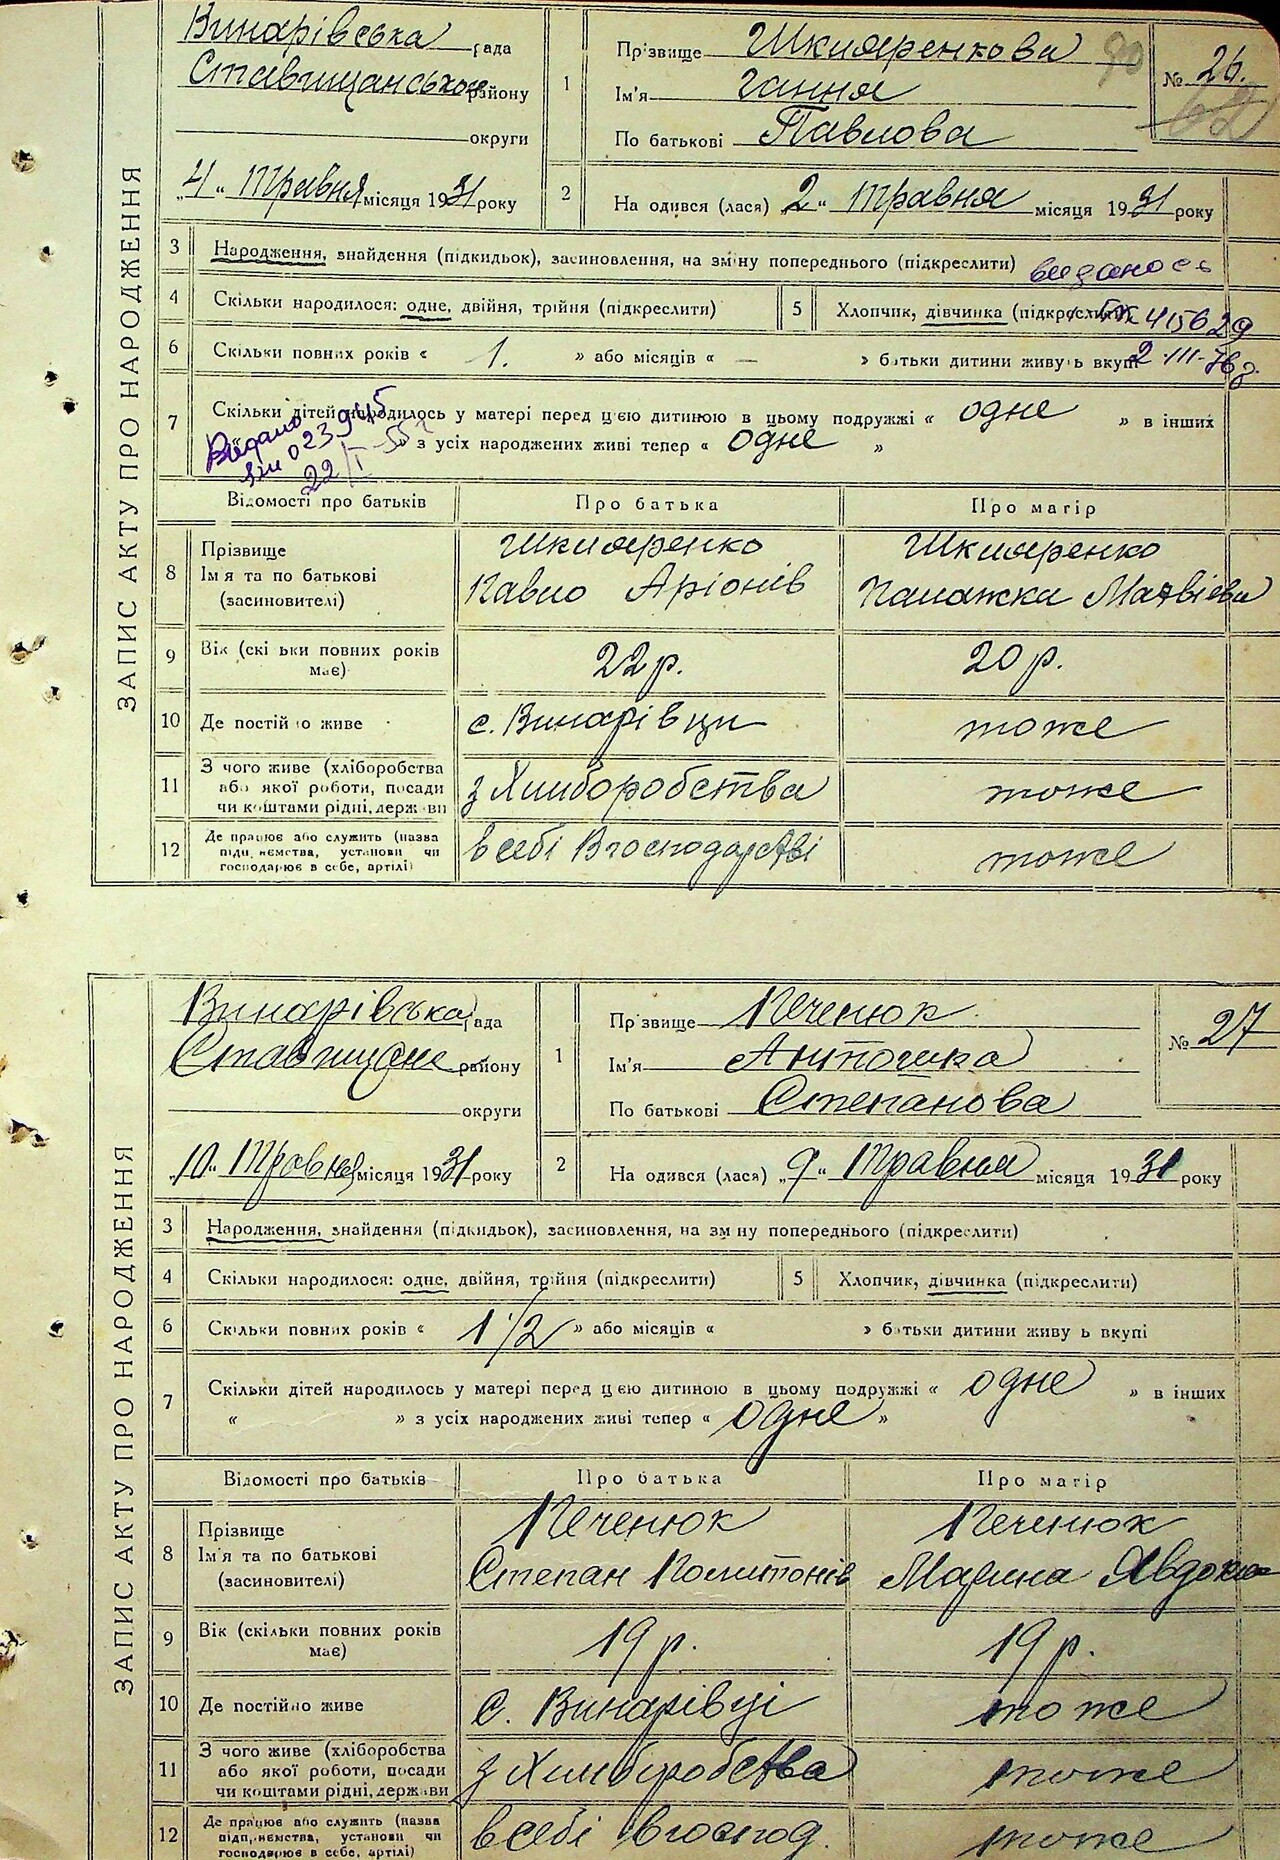 Винарівська рада
Ставищанського району
округи
„4" травня місяця 1931 року
ЗАПИС АКТУ ПРО НАРОДЖЕННЯ
1 Прізвище Шкляренкова 90
Ім'я Гання
По батькові Павлова
№ 26.
2 На одився (лася) „2" травня місяця 1931 року
3 Народження, знайдення (підкидьок), засиновлення, на зміну попереднього (підкреслити) видано св
4 Скільки народилося: одне, двійня, трійня (підкреслити) 5 Хлопчик, дівчинка (підкреслити) 415629
6 Скільки повних років « 1. » або місяців « — » батьки дитини живуть вкупі 2-III-76р
7 Скільки дітей народилось у матері перед цією дитиною в цьому подружжі « одне » в інших
» з усіх народжених живі тепер « одне »
Видано
023945
22/I-55
Відомості про батьків Про батька Про матір
8 Прізвище Ім'я та по батькові (засиновителі)
Шкляренко Шкляренко
Павло Аріонів Палажка Матвієва
9 Вік (скі ьки повних років має) 22 р. 20 р.
10 Де постійно живе с. Винарівци тоже
11 З чого живе (хліборобства або якої роботи, посади чи коштами рідні, держави з Хлиборобства тоже
12 Де працює або служить (назва підп. ємства, установи чи господарює в себе, артілі) в себі в господарстві тоже
Винарівська рада
Ставищане району
округи
„10" травня місяця 1931 року
ЗАПИС АКТУ ПРО НАРОДЖЕННЯ
1 Прізвище Печенюк
Ім'я Антошка
По батькові Степанова
№ 27
2 На одився (лася) „9" травня місяця 1931 року
3 Народження, знайдення (підкидьок), засиновлення, на зм ну попереднього (підкреслити)
4 Скільки народилося: одне, двійня, трійня (підкреслити) 5 Хлопчик, дівчинка (підкреслити)
6 Скільки повних років « 1 1/2 » або місяців « » батьки дитини живу ь вкупі
7 Скільки дітей народилось у матері перед цією дитиною в цьому подружжі « одне » в інших
« » з усіх народжених живі тепер « одне »
Відомості про батьків Про батька Про матір
8 Прізвище Ім'я та по батькові (засиновителі)
Печенюк Печенюк
Степан Политонів Марина Явдоким
9 Вік (скільки повних років має) 19 р. 19 р.
10 Де постійно живе с. Винарівці тоже
11 З чого живе (хліборобства або якої роботи, посади чи коштами рідні, держави з Хлиборобства тоже
12 Де працює або служить (назва підп, иємства, установи чи господарює в себе, артілі) в себі в господ. тоже